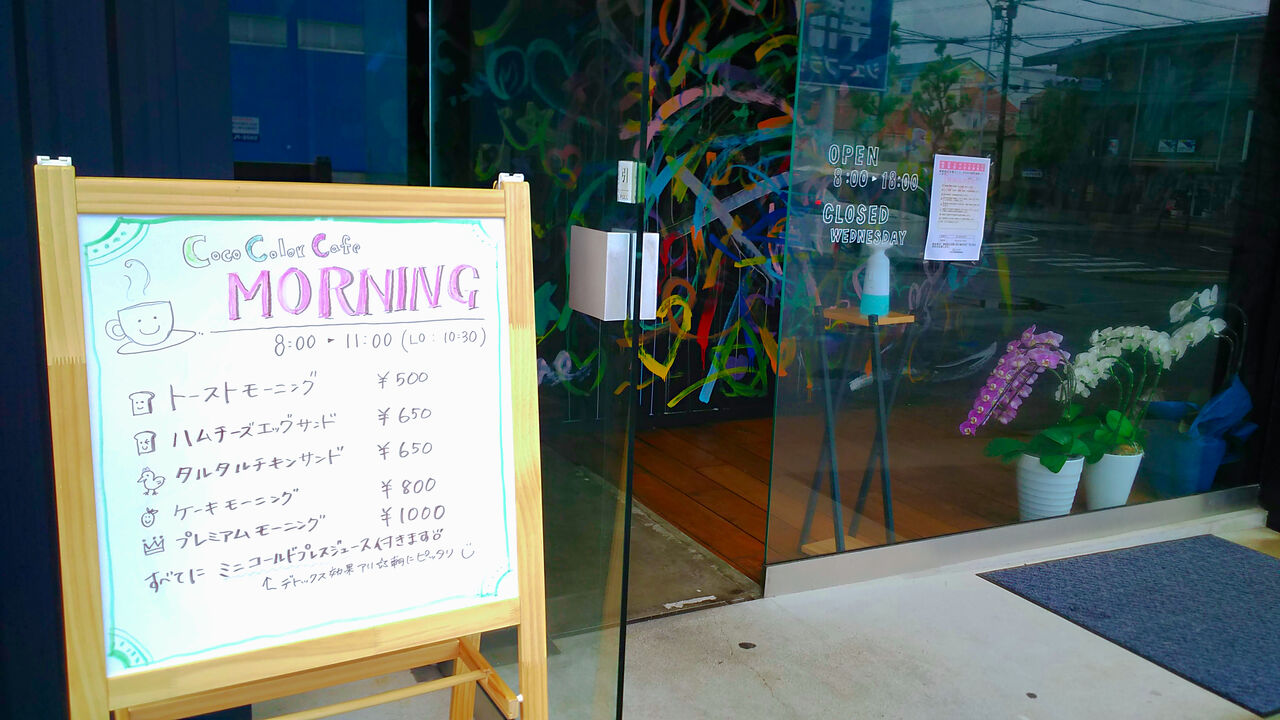 Coco Color Cafe
MORNING
8:00 ▸ 11:00 (LO : 10:30)
トーストモーニング ¥500
ハムチーズエッグサンド ¥650
タルタルチキンサンド ¥650
ケーキモーニング ¥800
プレミアムモーニング ¥1000
すべてに ミニコールドプレスジュース付きます
↑デトックス効果アリ 朝にピッタリ
引
OPEN
8:00 ▸ 18:00
CLOSED
WEDNESDAY